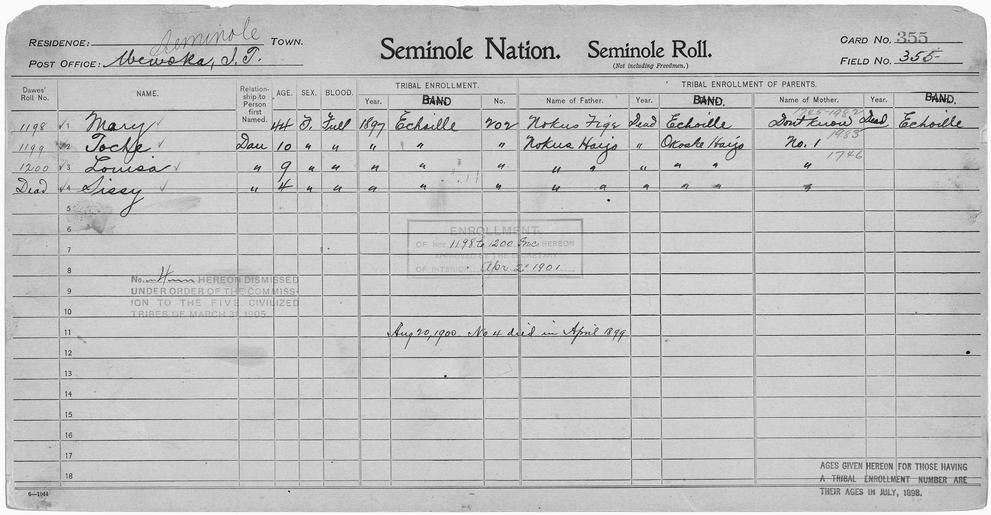 RESIDENCE: Seminole TOWN.
POST OFFICE: Wewoka, I.T.
Seminole Nation. Seminole Roll.
(Not including Freedmen.)
CARD NO. 355
FIELD NO. 355
Dawes' Roll No. NAME. Relationship to Person first Named. AGE. SEX. BLOOD. TRIBAL ENROLLMENT. TRIBAL ENROLLMENT OF PARENTS.
Year. BAND No. Name of Father. Year. BAND. Name of Mother. Year. BAND.
1198 1 Mary 44 F. Full 1897 Echoille 202 Nokus Fixe Dead Echoille Don't know Dead Echoille
1983
1199 2 Toche Dau 10 " " " " " Nokus Hairs " Okoske Hairs No. 1
1746
1200 3 Louisa " 9 " " " " " " " " " " "
Dead 4 Sissy " 4 " " " " " " " " " " "
5
6
ENROLLMENT
7 OF NOS. 1198 to 1200 Inc HEREON
APPROVED BY THE SECRETARY
8 OF INTERIOR Apr. 2 1901
No. 4 HEREON DISMISSED
9 UNDER ORDER OF THE COMMISSION
10 TO THE FIVE CIVILIZED
TRIBES OF MARCH 31, 1905.
11 Aug 20, 1900. No 4 died in April 1899
12
13
14
15
16
17
18
6—1044
AGES GIVEN HEREON FOR THOSE HAVING
A TRIBAL ENROLLMENT NUMBER ARE
THEIR AGES IN JULY, 1898.